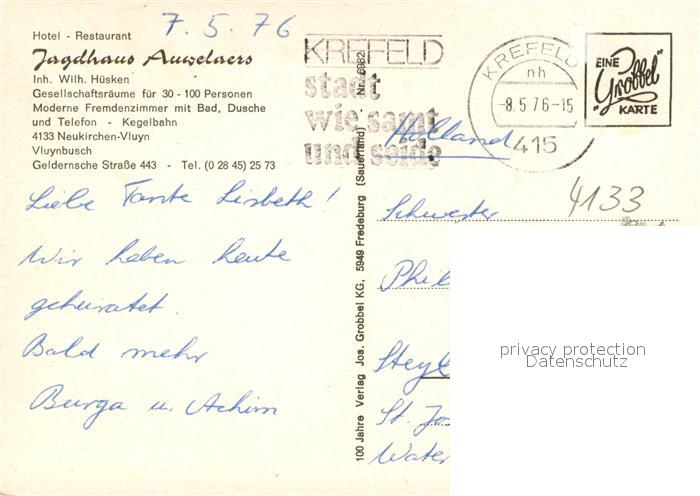 7.5.76
Hotel - Restaurant
Jagdhaus Auwelaers
Inh. Wilh. Hüsken
Gesellschaftsräume für 30 - 100 Personen
Moderne Fremdenzimmer mit Bad, Dusche
und Telefon - Kegelbahn
4133 Neukirchen-Vluyn
Vluynbusch
Geldernsche Straße 443 - Tel. (0 28 45) 25 73
Liebe Tante Lisbeth!
Wir haben heute
geheiratet.
Bald mehr
Burga u. Achim
100 Jahre Verlag Jos. Grobbel KG, 5949 Fredeburg (Sauerland) - Nr. 6982
KREFELD
stadt
wie samt
und seide
KREFELD
nh
-8.5.76-15
415
EINE
"Grobbel"
KARTE
Holland
4133
Schwester
Phil
Steyl
St. Jo
Water
privacy protection
Datenschutz